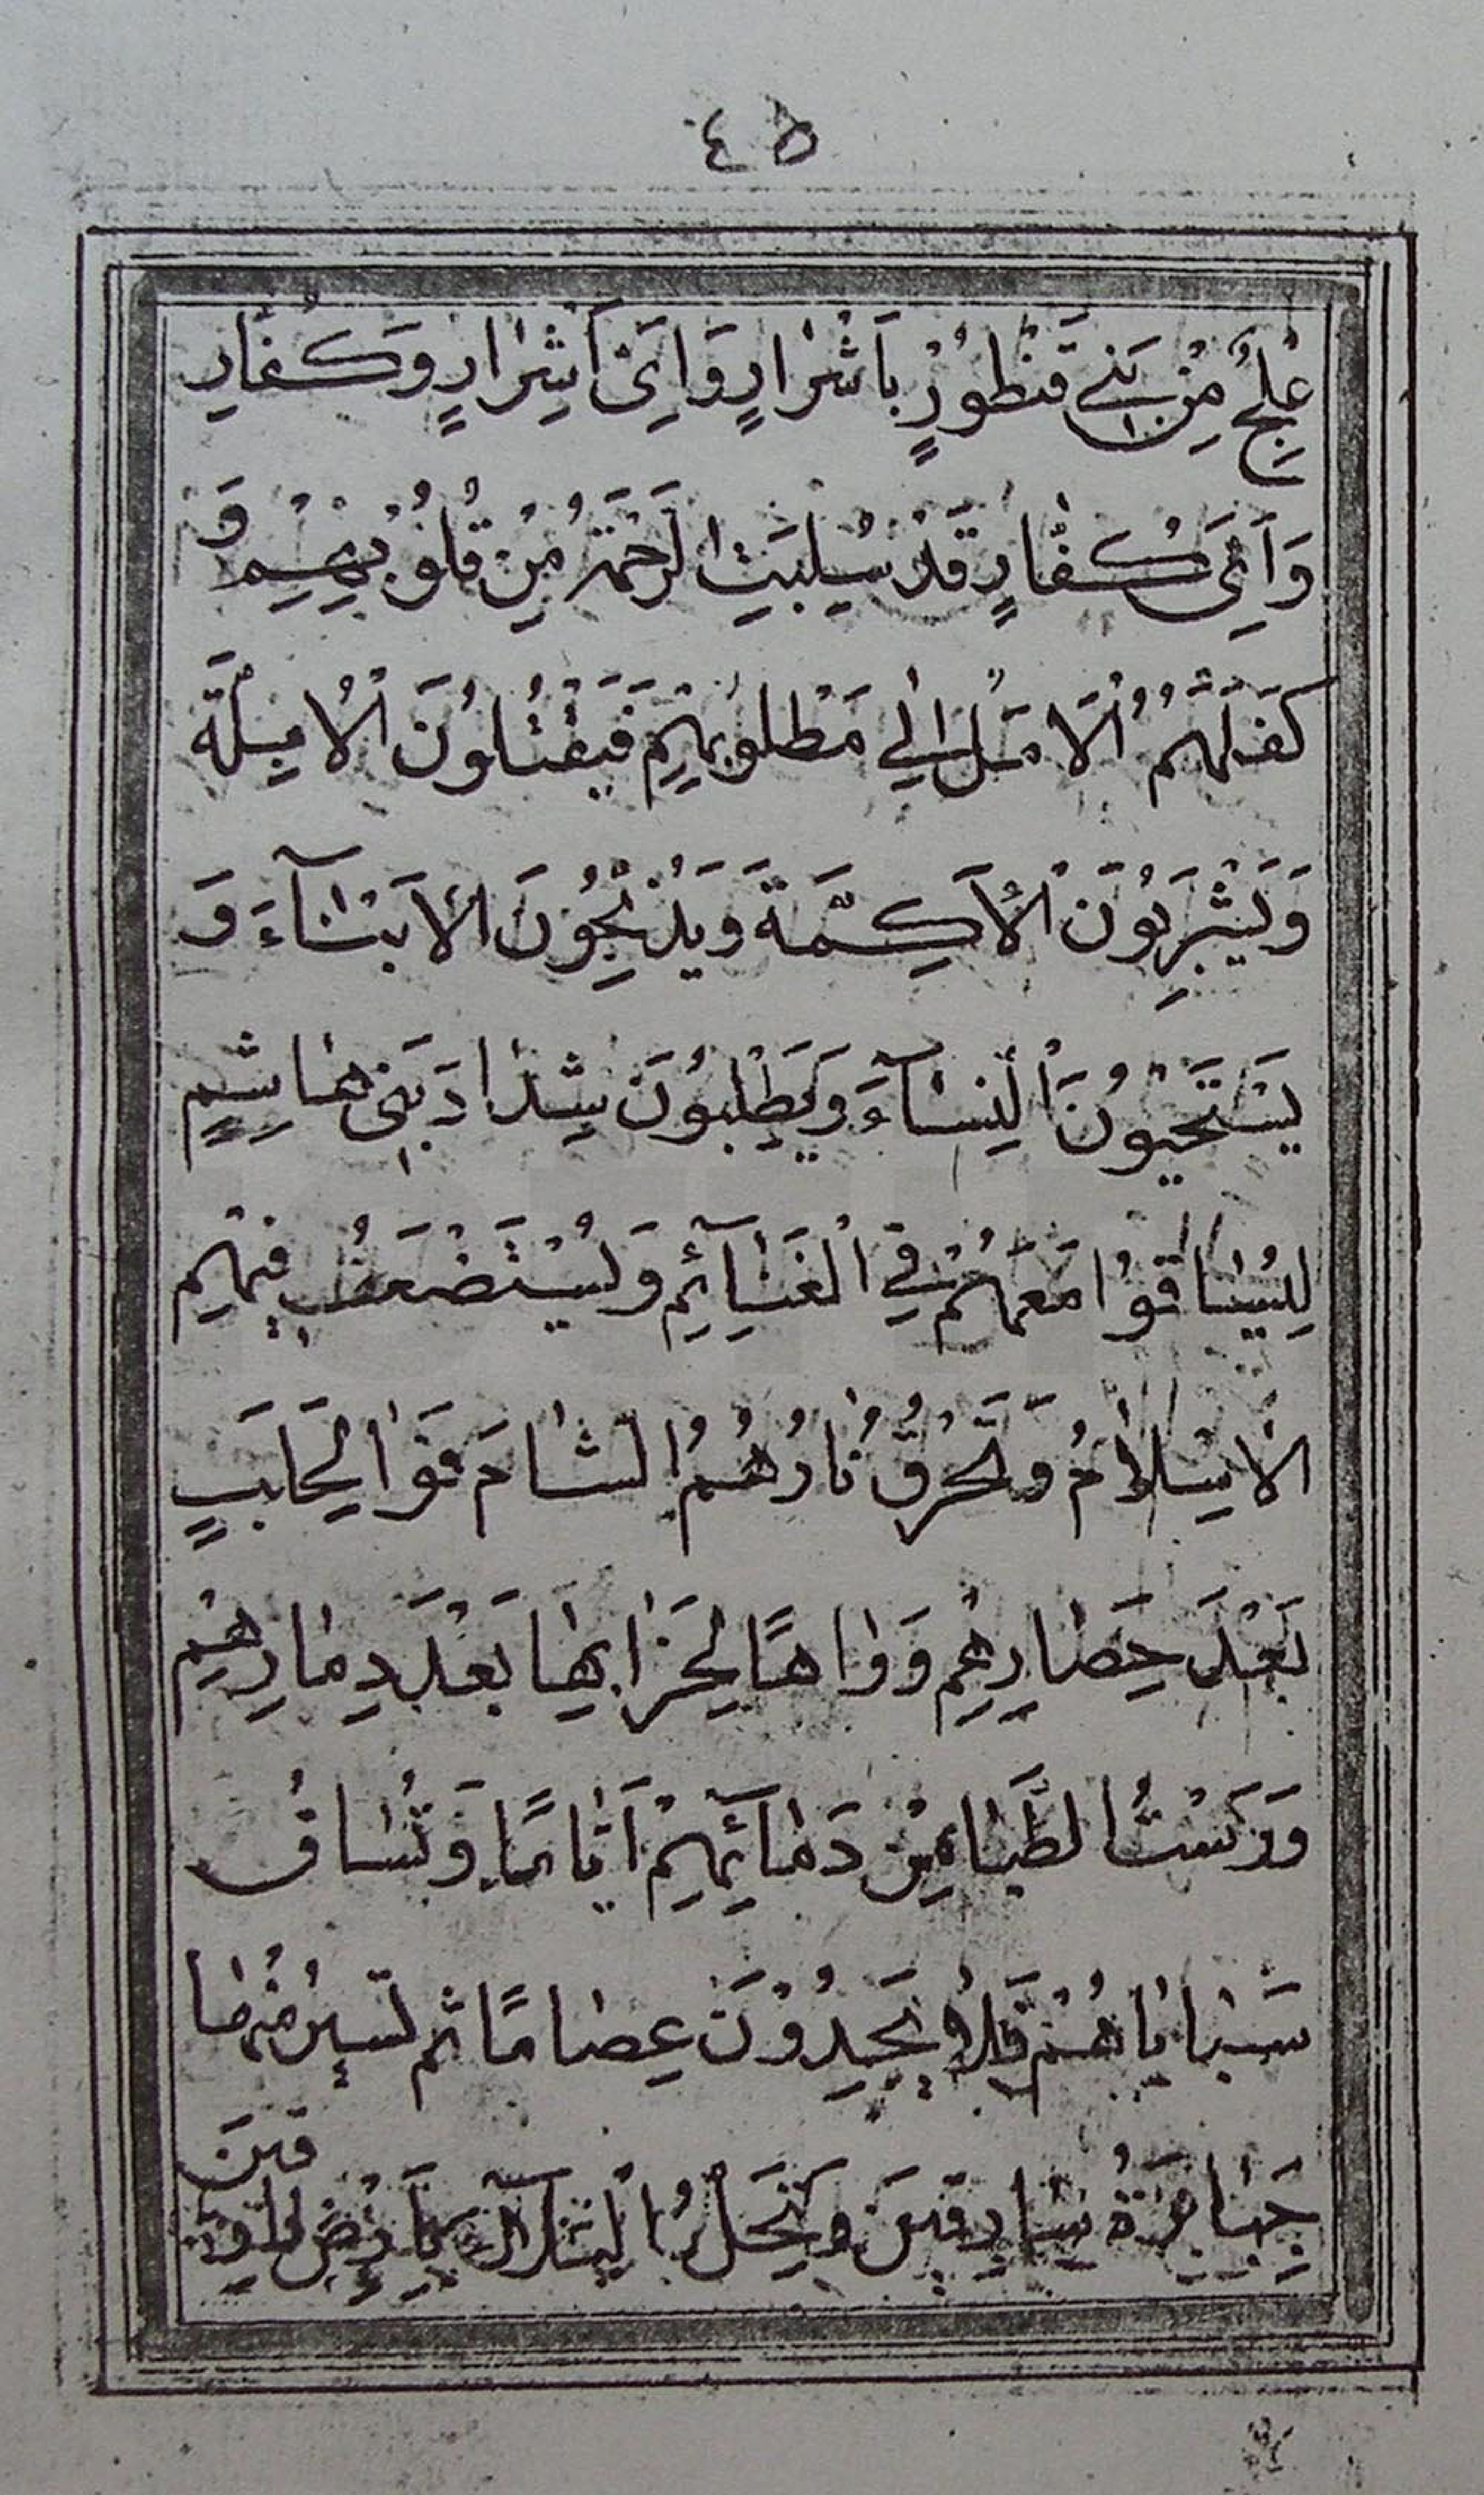 ٤٥
عِلْجٌ مِنْ بَنِي قَنْطُورٍ بِأَشْرَارٍ وَاَيِّ اَشْرَارٍ وَكُفَّارٍ
وَاَيِّ كُفَّارٍ قَدْ سُلِبَتِ الرَّحْمَةُ مِنْ قُلُوبِهِمْ وَ
كَفَلَهُمُ الْاَمَلُ اِلٰي مَطْلُوبِهِمْ فَيَقْتُلُونَ الْاَيِلَةَ
وَيَسْرِبُونَ الْاَكِمَّةَ وَيَذْبَحُونَ الْاَبْنَآءَ وَ
يَسْتَحْيُونَ النِّسَآءَ وَيَطْلِبُونَ شِدَادَ بَنِي هَاشِمٍ
لِيُسَاقُوا مَعَهُمْ فِي الْغَنَآئِمِ وَيُسْتَضْعَفُ فِيهِمِ
الْاِسْلَامُ وَتَحْرُقُ نَارُهُمُ الشَّامَ فَوَا لِحَلَبٍ
بَعْدَ حِصَارِهِمْ وَوَاهًا لِخَرَابِهَا بَعْدَ دِمَارِهِمْ
وَرَسْتُ الظَّبَا مِنْ دَمَآئِهِمْ اَيَّامًا وَتُسَاقُ
سَبَايَاهُمْ فَلَا يَجِدُونَ عِصَامًا ثم تسير منها
جَبَابِرَةُ مارقين وَيَحِلُّ الْبَلَآءُ بِاَرْضِ
قين